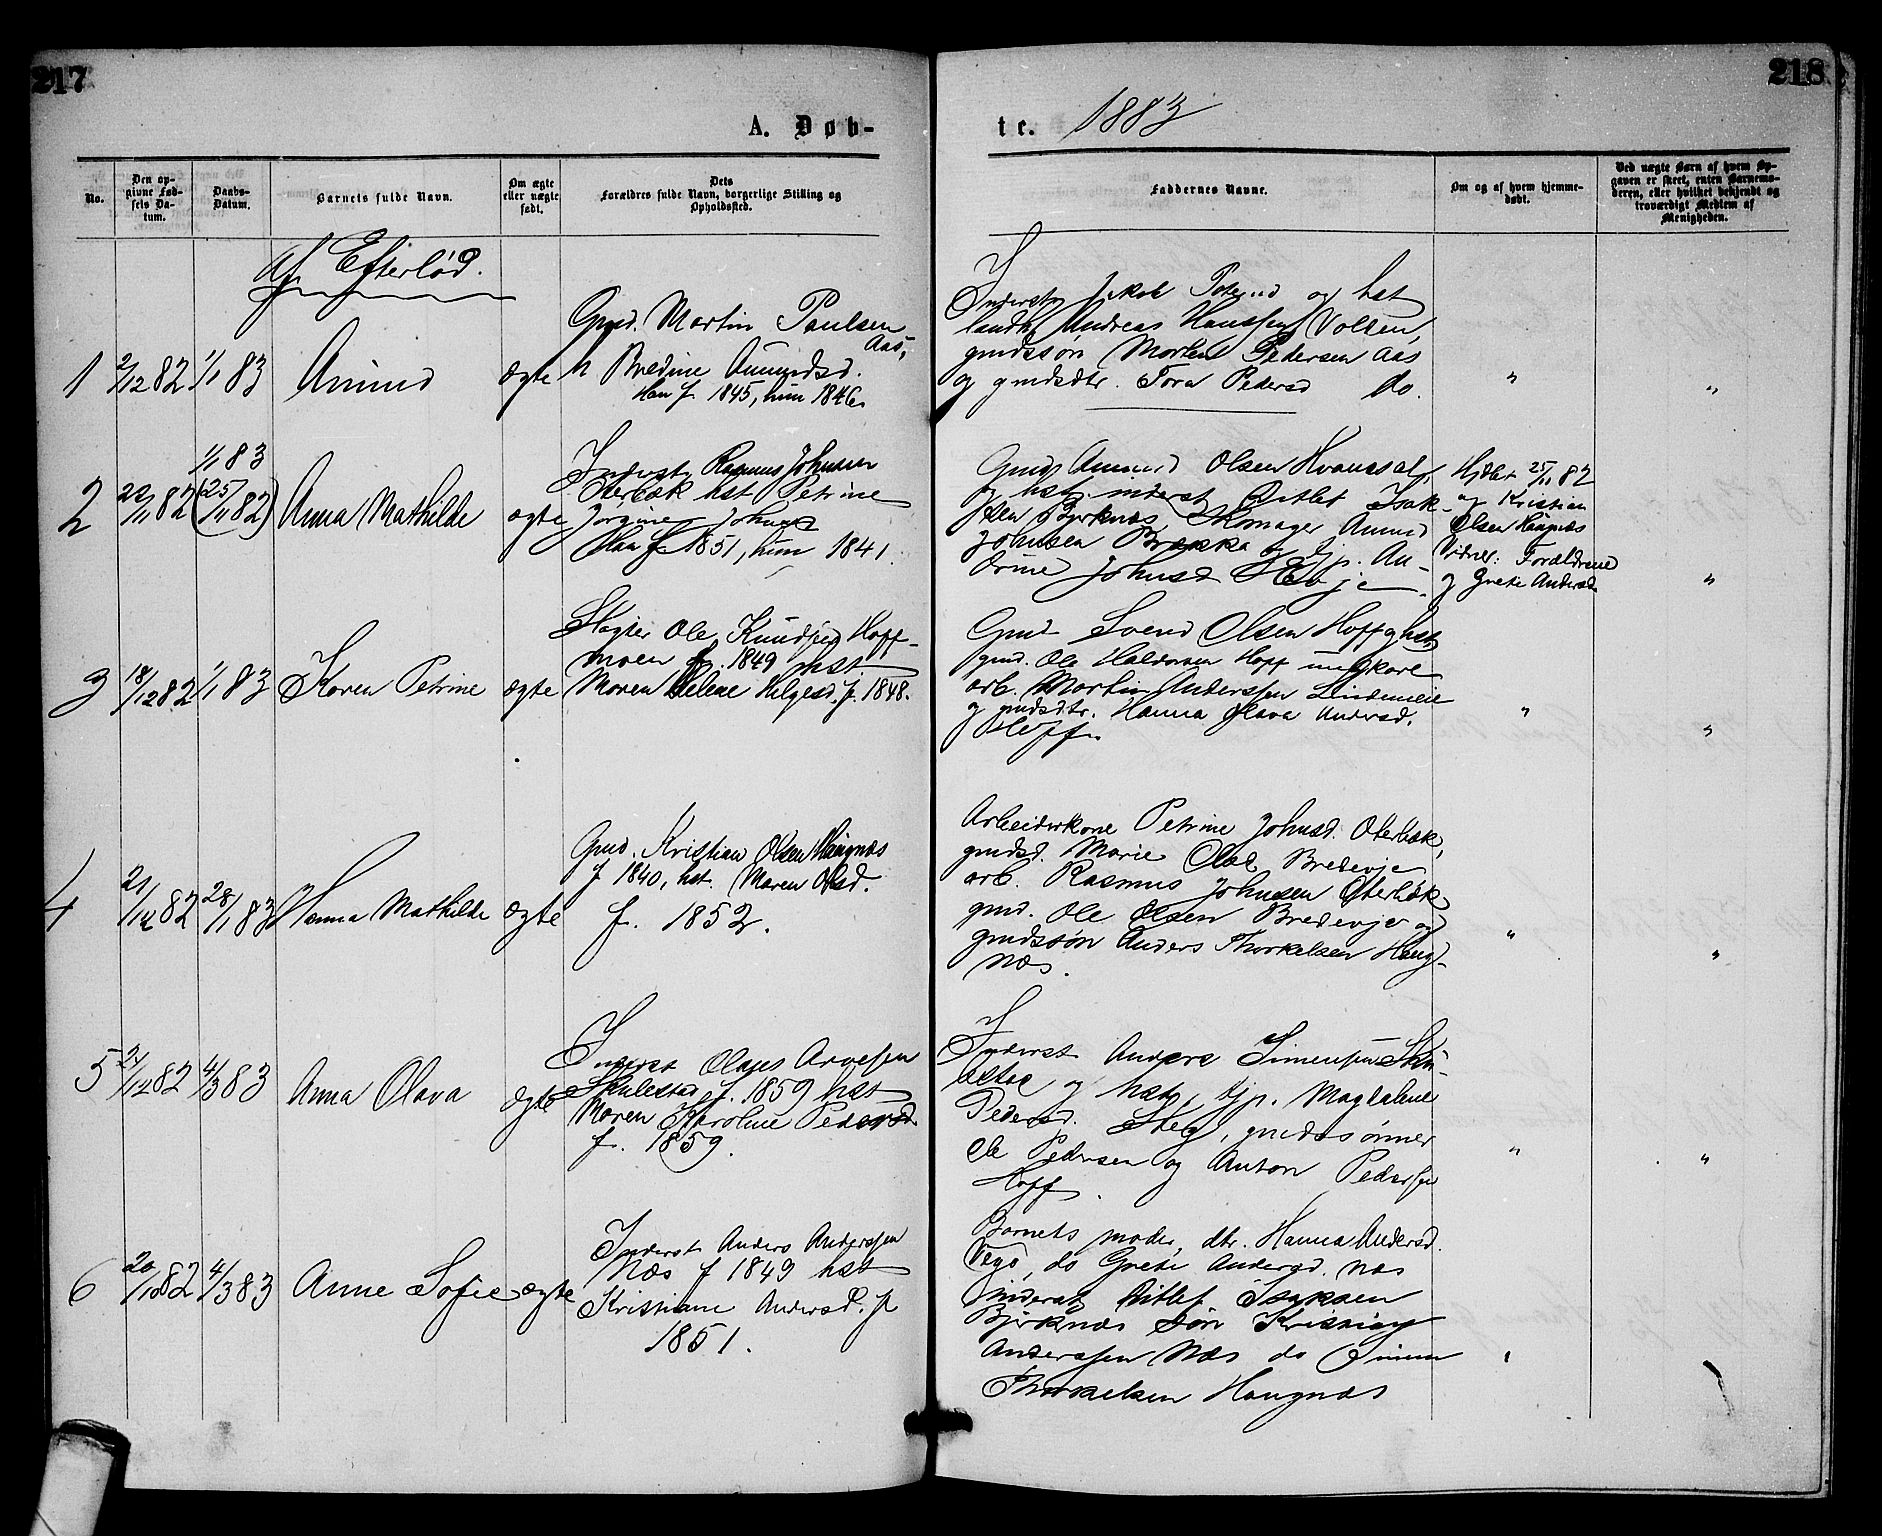 217
218
A. Døb-
te. 1883
No.
Den op-
givne Fød-
sels Da-
tum.
Daabs-
Datum.
Barnets fulde Navn.
Om ægte
eller uægte
født.
Dets
Forældres fulde Navn, borgerlige Stilling og
Opholdssted.
Faddernes Navne.
Om og af hvem hjemme-
døbt.
Ved uægte Børn af hvem Op-
gaven er skeet, enten Barnemo-
deren, eller hvilket bekjendt og
troværdigt Medlem af
Menigheden.
Af Efterlød.
1 2/12 82 1/1 83 Amund ægte
Gmd. Martin Paulsen
Aas,
h Bredine Amundsd.
Han f. 1845, hun 1846.
Inderst Jakob og hst
landh. Andreas Hanssen Volsen,
gmdssøn Morten Pedersen Aas
og gmdsdtr. Tora Pedersd do.
" "
2 22/11 82 1/1 83
(25/11 82) Anna Mathilde ægte
Inderst Rasmus Johnsen
Oterbæk hst Petrine
Jorgine Johnsd
Han f. 1851, hun 1841.
Gmd Amund Olsen
og hst. inderst Ditlef Isak-
sen Bjerknæs, Skomager Amund
Johnsen Brække og tjp. An-
drine Johnsd Hevje.
Hjdbt 25/11 82
og Kristian
Olsen Haugnæs
Vidner: Forældrene
og Grete Andersd
"
3 18/12 82 1/1 83 Karen Petrine ægte
Slagter Ole Knudsen Hoff-
moen f. 1849 hst
Maren Helene Helgesd. f. 1848.
Gmd Svend Olsen Hoff og hst
gmd. Ole Haldorsen Hoff ungkare
arb. Martin Anderssen Lindemeie
og gmdsdtr. Hanna Olava Andersd.
Hoff.
" "
4 21/12 82 28/1 83 Hanna Mathilde ægte
Gmd. Kristian Olsen Haugnæs
f 1840, hst. Maren Olsd.
f. 1852.
Arbeiderkone Petrine Johnsd. Oterbæk,
gmdsd. Marie Olsd Bredevje
arb. Rasmus Johnsen Oterbæk
gmd. Ole Olsen Bredevje og
gmdssøn Anders Thorkelsen Haug-
næs.
" "
5 21/12 82 4/3 83 Anna Olava ægte
Inderst Olaus Arvesen
Skulestad f. 1859 hst
Maren Karoline Pedersd
f. 1859.
Inderst Anders Simensen Sku-
lestad og hst, tjp. Magdalene
Pedersd. Steg, gmdssønner
Ole Pedersen og Anton Pedersen
Hoff.
" "
6 20/12 82 4/3 83 Anne Sofie ægte
Inderst Anders Anderssen
Næs f 1849 hst
Kristiane Andersd. f
1851.
Barnets moder, dtr. Hanna Andersd.
Vego, do Grete Andersd. Næs
inderst Ditlef Isaksen
Bjerknæs Søn Kristian
Anderssen Næs do Simen
Thorkelsen Haugnæs
"